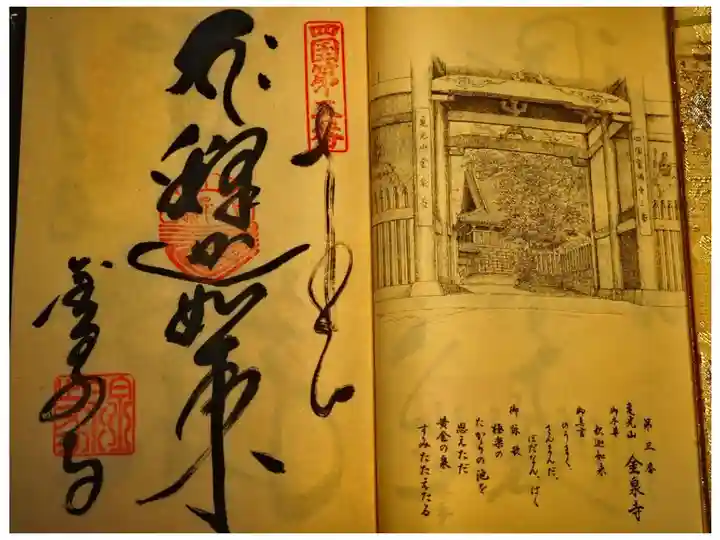 亀光山 金泉寺
第三番
亀光山 金泉寺
御本尊
釈迦如来
御真言
のうまく、
さんまんだ、
ぼだなん、ばく
御詠歌
極楽の
たからの池を
思えただ
黄金の泉
すみたたえたる
四国第三番
釋迦如来
金泉寺